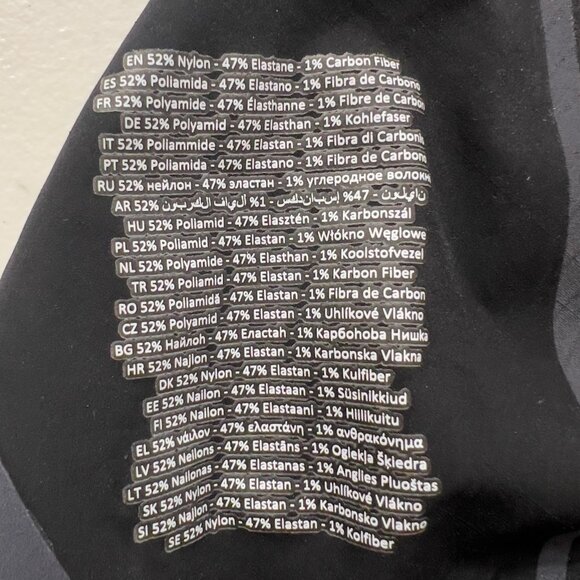 EN 52% Nylon - 47% Elastane - 1% Carbon Fiber
ES 52% Poliamida - 47% Elastano - 1% Fibra de Carbono
FR 52% Polyamide - 47% Élasthanne - 1% Fibre de Carbon
DE 52% Polyamid - 47% Elasthan - 1% Kohlefaser
IT 52% Poliammide - 47% Elastan - 1% Fibra di Carbonio
PT 52% Poliamida - 47% Elastano - 1% Fibra de Carbono
RU 52% нейлон - 47% эластан - 1% углеродное волокн
AR 52% نايلون - 47% إسباندكس - 1% ألياف الكربون
HU 52% Poliamid - 47% Elasztén - 1% Karbonszál
PL 52% Poliamid - 47% Elastan - 1% Włókno Węglowe
NL 52% Polyamide - 47% Elasthan - 1% Koolstofvezel
TR 52% Poliamid - 47% Elastan - 1% Karbon Fiber
RO 52% Poliamidă - 47% Elastan - 1% Fibra de Carbon
CZ 52% Polyamid - 47% Elastan - 1% Uhlíkové Vlákno
BG 52% Найлон - 47% Еластан - 1% Карбонова Нишка
HR 52% Najlon - 47% Elastan - 1% Karbonska Vlakna
DK 52% Nylon - 47% Elastan - 1% Kulfiber
EE 52% Nailon - 47% Elastaan - 1% Süsinikkiud
FI 52% Nailon - 47% Elastaani - 1% Hiilikuitu
EL 52% νάιλον - 47% ελαστάνη - 1% ανθρακόνημα
LV 52% Neilons - 47% Elastāns - 1% Oglekļa Šķiedra
LT 52% Nailonas - 47% Elastanas - 1% Anglies Pluoštas
SK 52% Nylon - 47% Elastan - 1% Uhlíkové Vlákno
SI 52% Najlon - 47% Elastan - 1% Karbonsko Vlakno
SE 52% Nylon - 47% Elastan - 1% Kolfiber